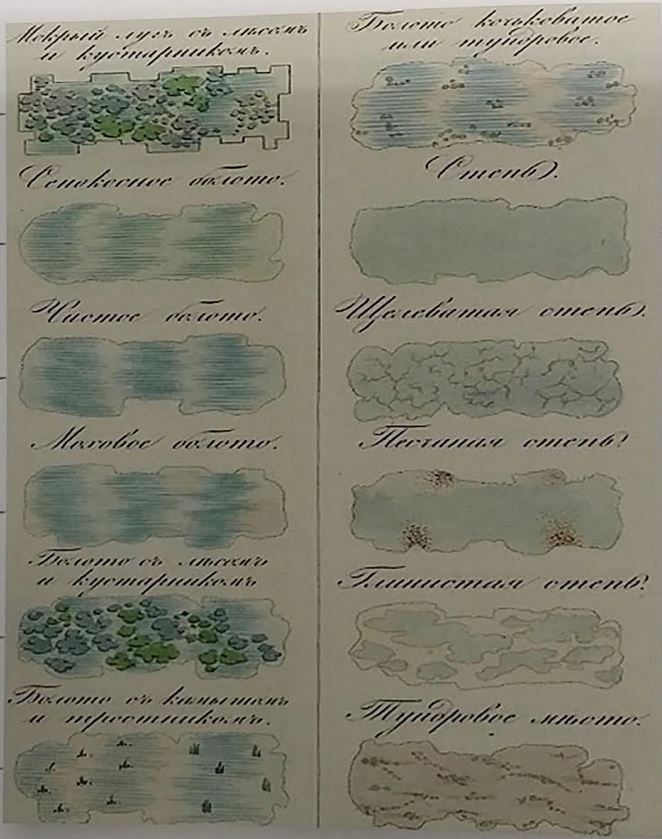 Мокрый лугъ съ лѣсомъ
и кустарникомъ.
Сенокосное болото.
Чистое болото.
Моховое болото.
Болото съ лѣсомъ
и кустарникомъ
Болото съ камышомъ
и тростникомъ.
Болото кочковатое
или тундровое.
Степь.
Щелеватая степь.
Песчаная степь.
Глинистая степь.
Тундровое мѣсто.